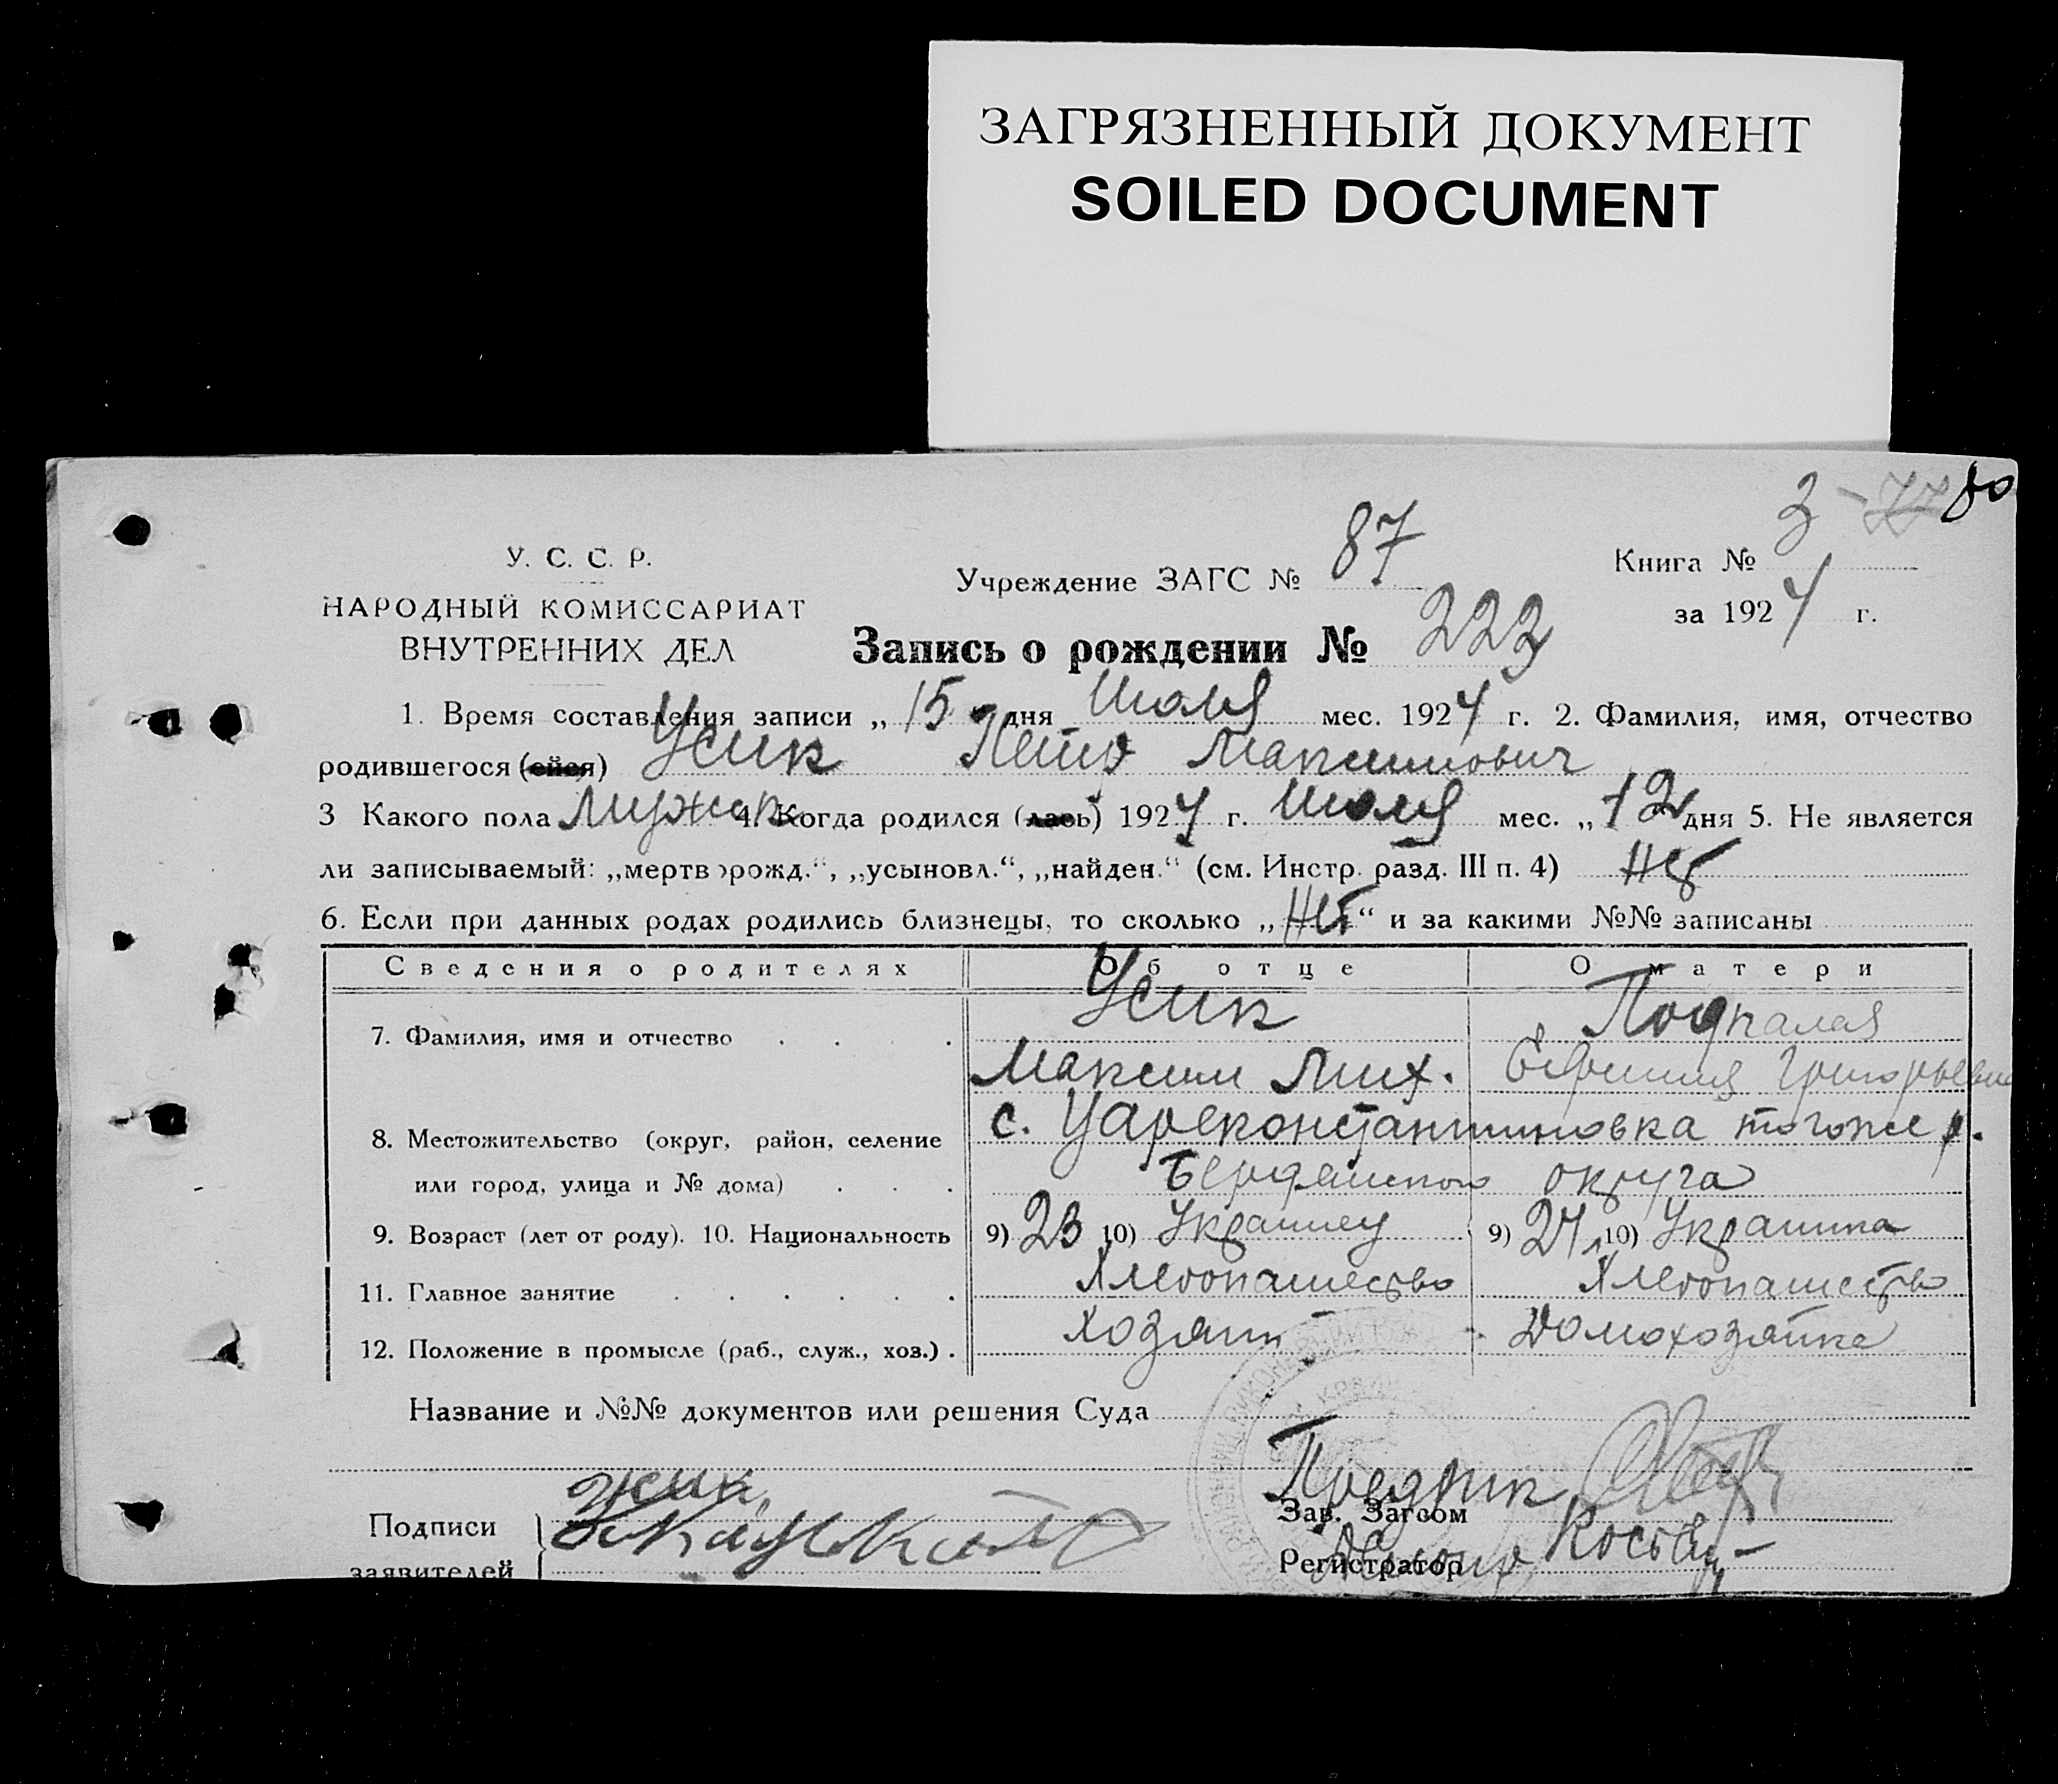 ЗАГРЯЗНЕННЫЙ ДОКУМЕНТ
SOILED DOCUMENT
3 - 77 80
У. С. С. Р.
НАРОДНЫЙ КОМИССАРИАТ
ВНУТРЕННИХ ДЕЛ
Учреждение ЗАГС № 87
Книга №
за 1924 г.
Запись о рождении № 223
1. Время составления записи „ 15 дня Июля мес. 1924 г. 2. Фамилия, имя, отчество
родившегося (ейся) Усик Петр Максимович
3 Какого пола Мужск. 4. Когда родился (лась) 1924 г. Июля мес. „ 12 дня 5. Не является
ли записываемый: „мертворожд.“, „усыновл.“, „найден.“ (см. Инстр. разд. III п. 4) Нет
6. Если при данных родах родились близнецы, то сколько „ Нет “ и за какими №№ записаны
Сведения о родителях Об отце О матери
7. Фамилия, имя и отчество Усик Подпалая
Максим Мих. Ефимия Григорьевна
8. Местожительство (округ, район, селение с. Цареконстантиновка тогоже р.
или город, улица и № дома) Бердянского округа
9. Возраст (лет от роду). 10. Национальность 9) 23 10) Украинец 9) 24 10) Украинка
11. Главное занятие Хлебопашество Хлебопашество
12. Положение в промысле (раб., служ., хоз.) . хозяин Домохозяйка
Название и №№ документов или решения Суда
Подписи
заявителей
Усик
Предрик
Зав. Загсом
Регистратор